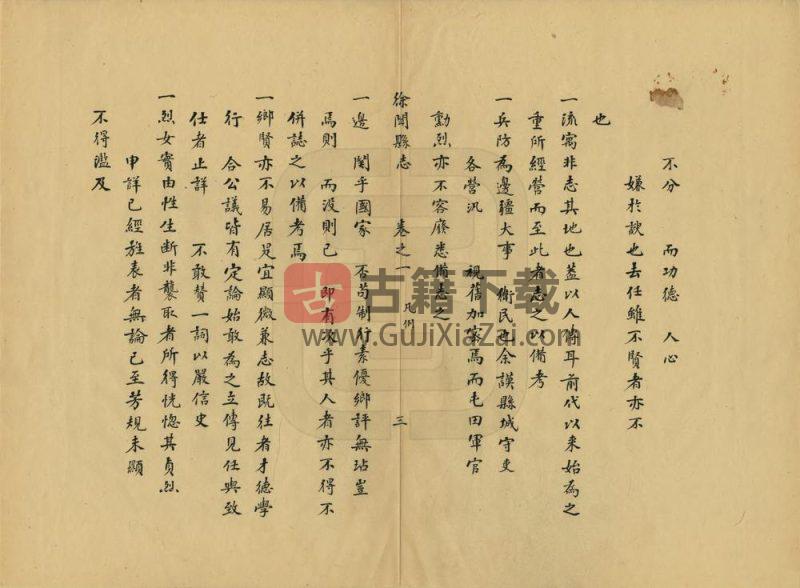 不分 而功德 人心
嫌於諛也去任雖不賢者亦不
也
一流寓非志其地也蓋以人 耳前代以来始為之
重所經營而至此者志之以備考
一兵防為邊疆大事 衛民也余謨縣城守吏
各營汛 視舊加 焉而屯田軍官
勳烈亦不容廢悉備志之
徐聞縣志 卷之一 凡例 三
一邊 関乎國家 否苟制行素優鄉評無玷豈
焉則 而沒則已 即有 乎其人者亦不得不
併誌之以備考焉
一鄉賢亦不易居是宜顯微兼志故既往者才德學
行 合公議皆有定論始敢為之立傳見任與致
仕者止詳 不敢贊一詞以嚴信史
一烈女實由性生断非襲取者所得恍惚其貞烈
申詳已經旌表者無論已至芳規未顯
不得濫及
古籍下载
www.GuJiXiaZai.com